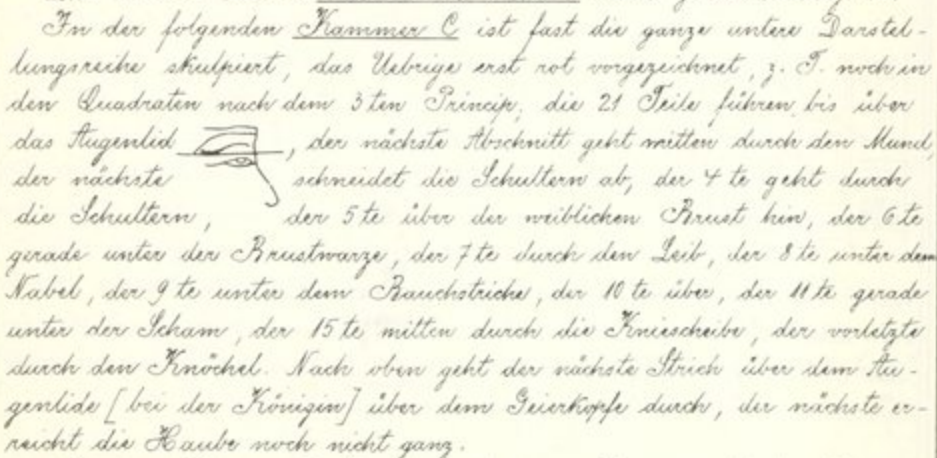 In der folgenden Kammer C ist fast die ganze untere Darstel-
lungsreihe skulpiert, das Uebrige erst rot vorgezeichnet, z. T. noch in
den Quadraten nach dem 3ten Princip; die 21 Teile führen bis über
das Augenlid , der nächste Abschnitt geht mitten durch den Mund,
der nächste schneidet die Schultern ab, der 4te geht durch
die Schultern, der 5te über der weiblichen Brust hin, der 6te
gerade unter der Brustwarze, der 7te durch den Leib, der 8te unter dem
Nabel, der 9te unter dem Bauchstriche, der 10te über, der 11te gerade
unter der Scham, der 15te mitten durch die Kniescheibe, der vorletzte
durch den Knöchel. Nach oben geht der nächste Strich über dem Au-
genlide [bei der Königin] über dem Geierkopfe durch, der nächste er-
reicht die Haube noch nicht ganz.